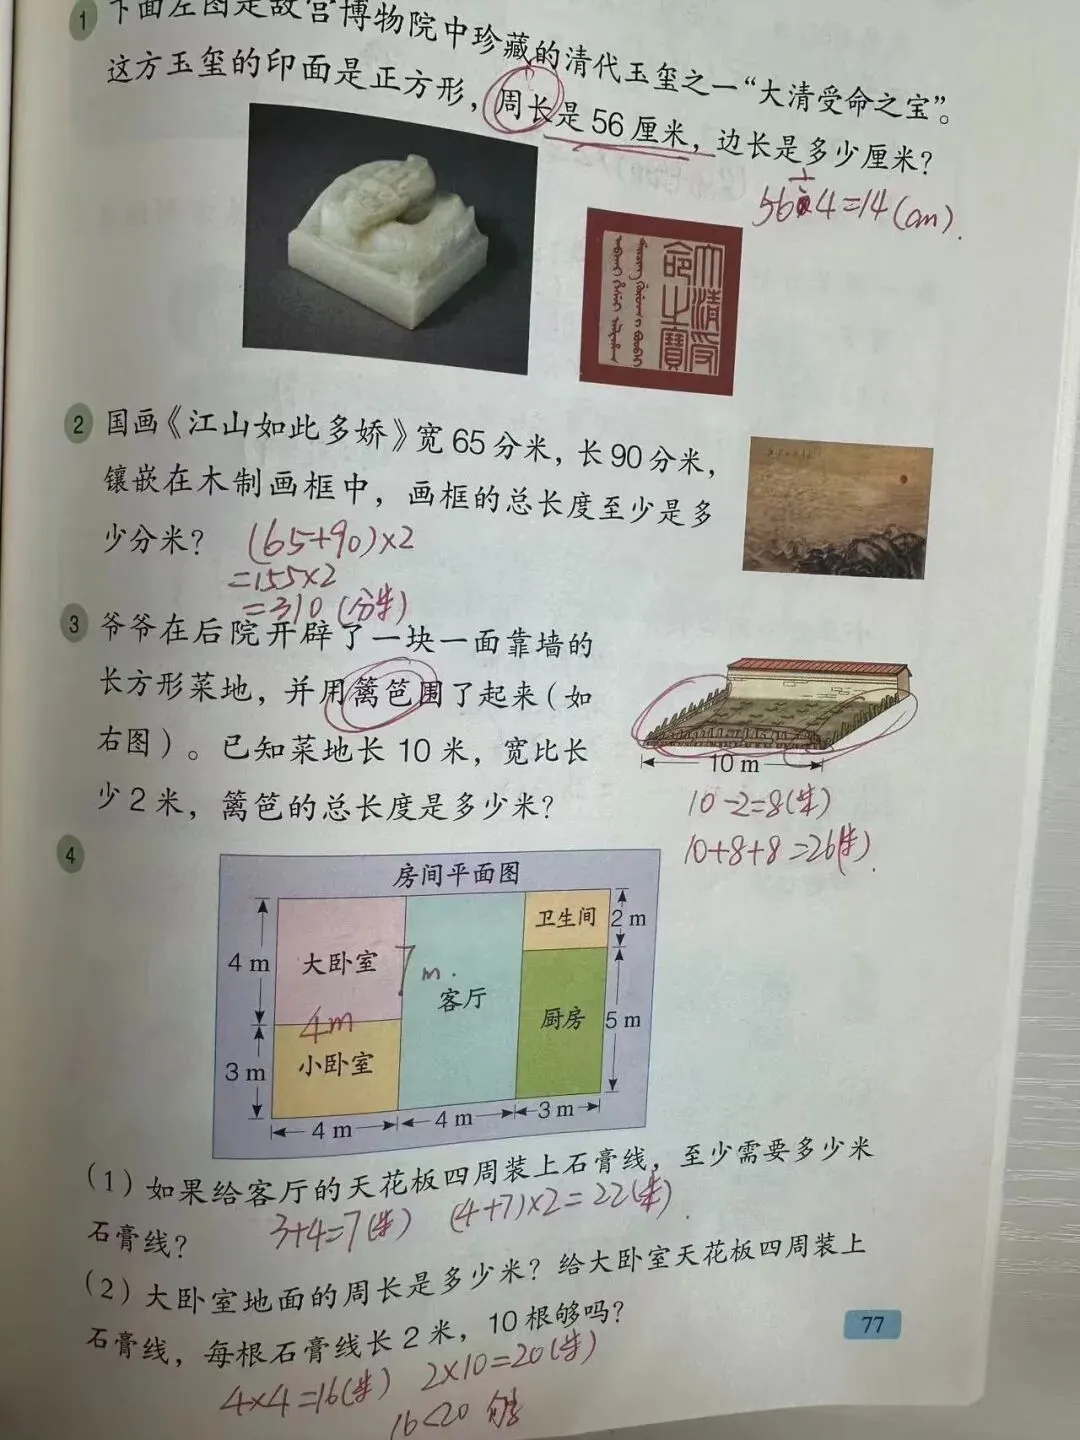 1 下面左图是故宫博物院中珍藏的清代玉玺之一“大清受命之宝”。
这方玉玺的印面是正方形，周长是56厘米，边长是多少厘米？
56÷4=14(cm).
大清受
命之寶
2 国画《江山如此多娇》宽65分米，长90分米，
镶嵌在木制画框中，画框的总长度至少是多
少分米？
(65+90)×2
=155×2
=310(分米)
3 爷爷在后院开辟了一块一面靠墙的
长方形菜地，并用篱笆围了起来（如
右图）。已知菜地长10米，宽比长
少2米，篱笆的总长度是多少米？
10 m
10-2=8(米)
10+8+8=26(米).
4
房间平面图
4 m
大卧室
4m
3 m
小卧室
7m.
客厅
卫生间
2 m
厨房
5 m
4 m
4 m
3 m
（1）如果给客厅的天花板四周装上石膏线，至少需要多少米
石膏线？
3+4=7(米) (4+7)×2=22(米).
（2）大卧室地面的周长是多少米？给大卧室天花板四周装上
石膏线，每根石膏线长2米，10根够吗？
4×4=16(米) 2×10=20(米)
16<20 够
77